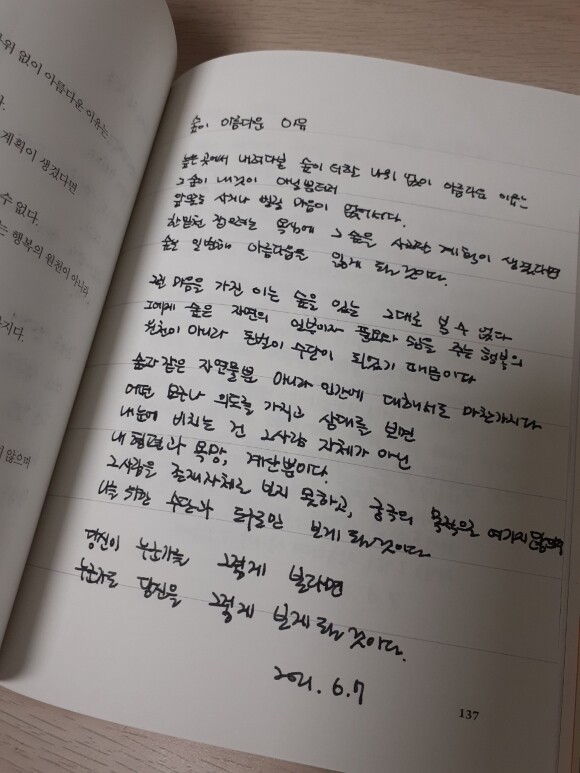 나위 없이 아름다운 이유는
계획이 생겼다면
수 없다.
는 행복의 원천이 아니라
지 않으며
숲이 아름다운 이유
높은 곳에서 내려다본 숲이 더할 나위 없이 아름다운 이유는
그 숲이 내것이 아닐뿐더러
앞으로 사거나 빌릴 마음이 없어서다.
한밑천 잡으려는 욕심에 그 숲을 사려한 계획이 생겼다면
숲은 일변해 아름다움을 잃게 될 것이다.
그런 마음을 가진 이는 숲을 있는 그대로 볼 수 없다
그에게 숲은 자연의 일부이자 풍요와 쉼을 주는 행복의
원천이 아니라 돈벌이 수단이 되었기 때문이다
숲과 같은 자연물뿐 아니라 인간에 대해서도 마찬가지다
어떤 욕구나 의도를 가지고 상대를 보면
내 눈에 비치는 건 그사람 자체가 아닌
내 형편과 욕망, 계산뿐이다.
그사람을 존재자체로 보지 못하고, 궁극의 목적으로 여기지 않으며
나를 위한 수단과 도구로만 보게 될 것이다
당신이 누군가를 그렇게 본다면
누군가도 당신을 그렇게 보게 될 것이다.
2021. 6. 7
137